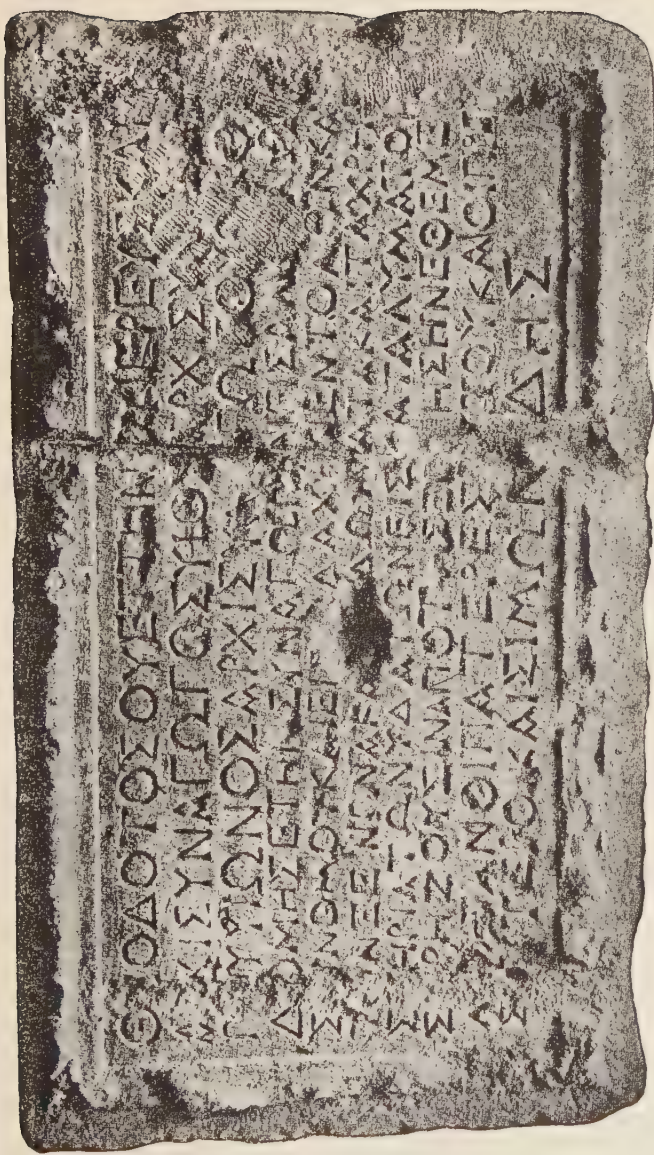 ΘΕΟΔΟΤΟΣ ΟΥΕΤΤΗΝΟΥ ΙΕΡΕΥΣ ΚΑΙ
ΑΡΧΙΣΥΝΑΓΩΓΟΣ ΥΙΟΣ ΑΡΧΙΣΥΝ
ΓΩΓΟΥ ΥΙΩΝΟΣ ΑΡΧΙΣΥΝ ΓΩΓΟΥ ΩΚΟ
ΔΟΜΗΣΕ ΤΗΝ ΣΥΝΑΓΩΓΗΝ ΕΙΣ ΑΝ ΩΣ
ΙΝ ΝΟΜΟΥ ΚΑΙ ΕΙΣ ΔΑΧΗΝ ΕΝΤΟΛΩΝ ΚΑΙ
ΤΟΝ ΞΕΝΩΝΑ ΚΑΙ ΔΩΜΑΤΑ ΚΑΙ ΤΑ ΧΡΗ
ΣΤΗΡΙΑ ΤΩΝ ΥΔΑΤΩΝ ΕΙΣ ΚΑΤΑΛΥΜΑ ΤΟΙ
Σ ΧΡΗΖΟΥΣΙΝ ΑΠΟ ΤΗΣ ΞΕΝΗΣ ΗΝ ΕΘΕΜΕ
ΛΙΩΣΑΝ ΟΙ ΠΑΤΕΡΕΣ ΑΥΤΟΥ ΚΑΙ ΟΙ ΠΡΕ
ΣΒΥΤΕΡΟΙ ΚΑΙ ΣΙΜΩΝΙΔΗΣ